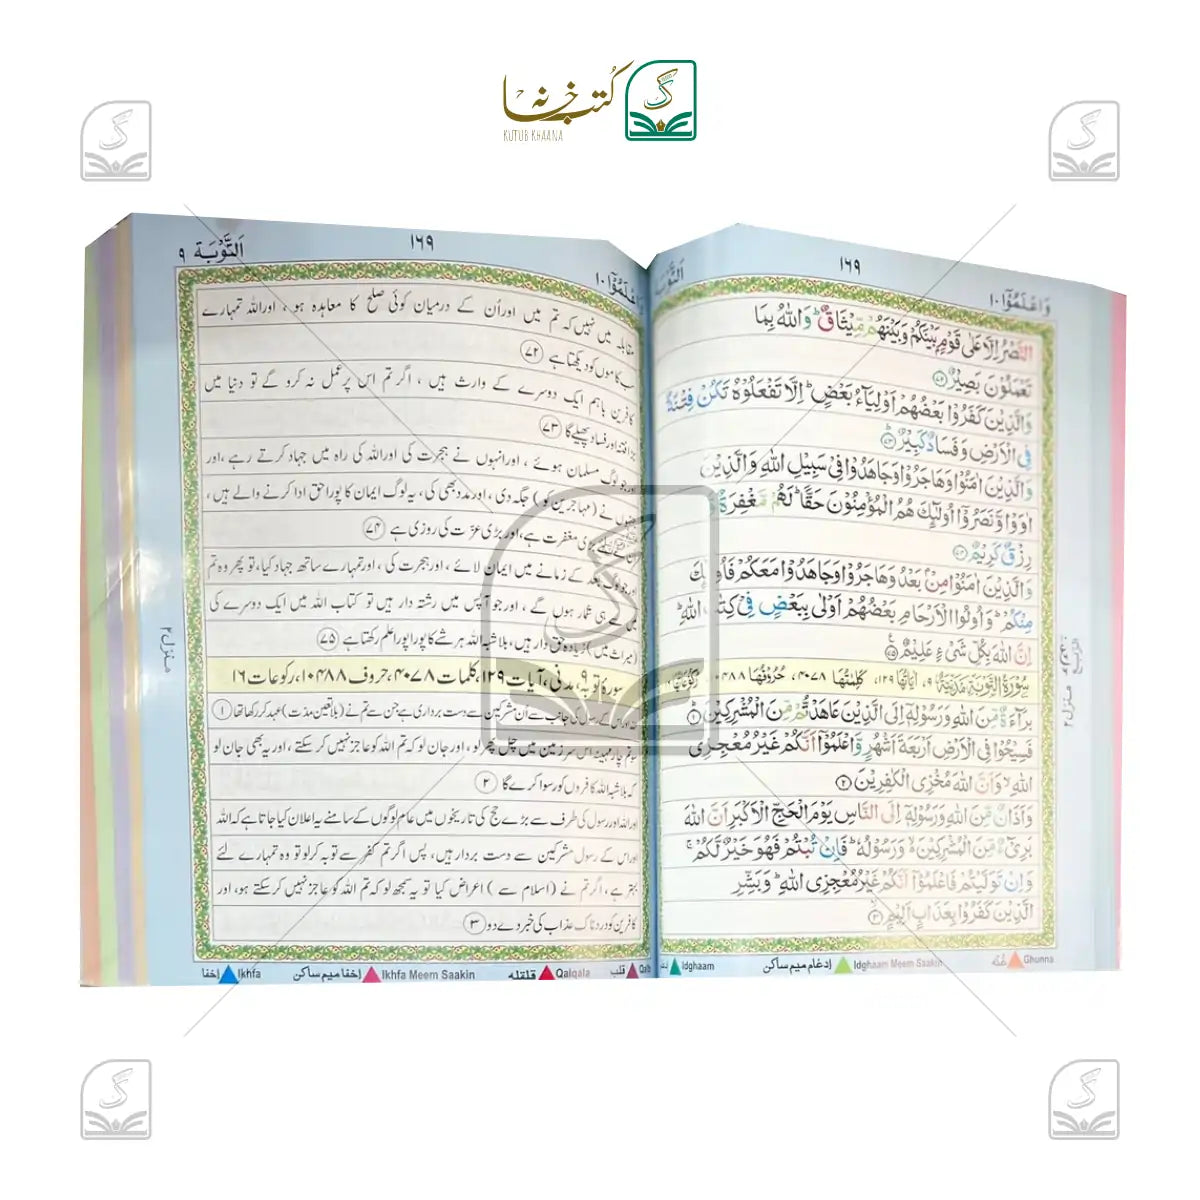 کتب خانہ
KUTUB KHAANA
وَاعْلَمُوْۤا ۱۰
۱۶۹
اَلتَّوْبَة
النَّصْرُ اِلَّا عَلٰی قَوْمٍۭ بَيْنَكُمْ وَبَيْنَهُمْ مِّيْثَاقٌ ؕ وَاللّٰهُ بِمَا
تَعْمَلُوْنَ بَصِيْرٌ ﴿۷۲﴾
وَالَّذِيْنَ كَفَرُوْا بَعْضُهُمْ اَوْلِيَآءُ بَعْضٍ ؕ اِلَّا تَفْعَلُوْهُ تَكُنْ فِتْنَةٌ
فِی الْاَرْضِ وَفَسَادٌ كَبِيْرٌ ﴿۷۳﴾
وَالَّذِيْنَ اٰمَنُوْا وَهَاجَرُوْا وَجَاهَدُوْا فِیْ سَبِيْلِ اللّٰهِ وَالَّذِيْنَ
اٰوَوْا وَّنَصَرُوْۤا اُولٰٓئِكَ هُمُ الْمُؤْمِنُوْنَ حَقًّا ؕ لَهُمْ مَّغْفِرَةٌ وَّ
رِزْقٌ كَرِيْمٌ ﴿۷۴﴾
وَالَّذِيْنَ اٰمَنُوْا مِنْۢ بَعْدُ وَهَاجَرُوْا وَجَاهَدُوْا مَعَكُمْ فَاُولٰٓئِكَ
مِنْكُمْ ؕ وَاُولُوا الْاَرْحَامِ بَعْضُهُمْ اَوْلٰی بِبَعْضٍ فِیْ كِتٰبِ اللّٰهِ ؕ
اِنَّ اللّٰهَ بِكُلِّ شَیْءٍ عَلِيْمٌ ﴿۷۵﴾
سُوْرَةُ التَّوْبَةِ مَدَنِيَّةٌ ۹، اٰيَاتُهَا ۱۲۹، كَلِمَتُهَا ۴۰۷۸، حُرُوْفُهَا ۱۰۴۸۸، رُكُوْعَاتُهَا ۱۶
بَرَآءَةٌ مِّنَ اللّٰهِ وَرَسُوْلِهٖۤ اِلَی الَّذِيْنَ عَاهَدْتُّمْ مِّنَ الْمُشْرِكِيْنَ ﴿۱﴾
فَسِيْحُوْا فِی الْاَرْضِ اَرْبَعَةَ اَشْهُرٍ وَّاعْلَمُوْۤا اَنَّكُمْ غَيْرُ مُعْجِزِی
اللّٰهِ ۙ وَاَنَّ اللّٰهَ مُخْزِی الْكٰفِرِيْنَ ﴿۲﴾
وَاَذَانٌ مِّنَ اللّٰهِ وَرَسُوْلِهٖۤ اِلَی النَّاسِ يَوْمَ الْحَجِّ الْاَكْبَرِ اَنَّ اللّٰهَ
بَرِیْٓءٌ مِّنَ الْمُشْرِكِيْنَ ۙ۬ وَرَسُوْلُهٗ ؕ فَاِنْ تُبْتُمْ فَهُوَ خَيْرٌ لَّكُمْ ۚ
وَاِنْ تَوَلَّيْتُمْ فَاعْلَمُوْۤا اَنَّكُمْ غَيْرُ مُعْجِزِی اللّٰهِ ؕ وَبَشِّرِ
الَّذِيْنَ كَفَرُوْا بِعَذَابٍ اَلِيْمٍ ﴿۳﴾
منزل ۲
غُنّه Ghunna
إدغام ميم ساکن Idghaam Meem Saakin
Idghaam
وَاعْلَمُوْۤا ۱۰
۱۶۹
اَلتَّوْبَة ۹
مقابلہ میں نہیں کہ تم میں اور اُن کے درمیان کوئی صلح کا معاہدہ ہو، اور اللہ تمہارے
سب کاموں کو دیکھتا ہے ﴿۷۲﴾
کافرین باہم ایک دوسرے کے وارث ہیں، اگر تم اس پر عمل نہ کرو گے تو دنیا میں
بڑا فتنہ اور فساد پھیلے گا ﴿۷۳﴾
اور جو لوگ مسلمان ہوئے، اور انہوں نے ہجرت کی اور اللہ کی راہ میں جہاد کرتے رہے، اور
جنہوں نے (مہاجرین کو) جگہ دی، اور مدد بھی کی، یہ لوگ ایمان کا پورا حق ادا کرنے والے ہیں،
ان کے لئے بڑی مغفرت ہے، اور بڑی عزت کی روزی ہے ﴿۷۴﴾
اور جو لوگ بعد کے زمانے میں ایمان لائے، اور ہجرت کی، اور تمہارے ساتھ جہاد کیا، تو پھر وہ تم
میں سے ہی شمار ہوں گے، اور جو آپس میں رشتہ دار ہیں تو کتاب اللہ میں ایک دوسرے کی
(میراث میں) زیادہ حق دار ہیں، بلاشبہ اللہ ہر شے کا پورا پورا علم رکھتا ہے ﴿۷۵﴾
سورۂ توبہ ۹، مدنی، آیات ۱۲۹، کلمات ۴۰۷۸، حروف ۱۰۴۸۸، رکوعات ۱۶
اللہ اور اس کے رسول کی جانب سے اُن مشرکین سے دست برداری ہے جن سے تم نے (بلاتعین مدت) عہد کر رکھا تھا ﴿۱﴾
سو تم چار مہینہ اس سرزمین میں چل پھر لو، اور جان لو کہ تم اللہ کو عاجز نہیں کر سکتے، اور یہ بھی جان لو
کہ بلاشبہ اللہ کافروں کو رسوا کرے گا ﴿۲﴾
اور اللہ اور رسول کی طرف سے بڑے حج کی تاریخوں میں عام لوگوں کے سامنے یہ اعلان کیا جاتا ہے کہ اللہ
اور اس کے رسول مشرکین سے دست بردار ہیں، پس اگر تم کفر سے توبہ کر لو تو وہ تمہارے لئے
بہتر ہے، اگر تم نے (اسلام سے) اعراض کیا تو یہ سمجھ لو کہ تم اللہ کو عاجز نہیں کر سکتے ہو، اور
کافرین کو دردناک عذاب کی خبر دے دو ﴿۳﴾
منزل ۲
قلب Qalb
قلقلہ Qalqala
إخفا ميم ساکن Ikhfa Meem Saakin
إخفا Ikhfa